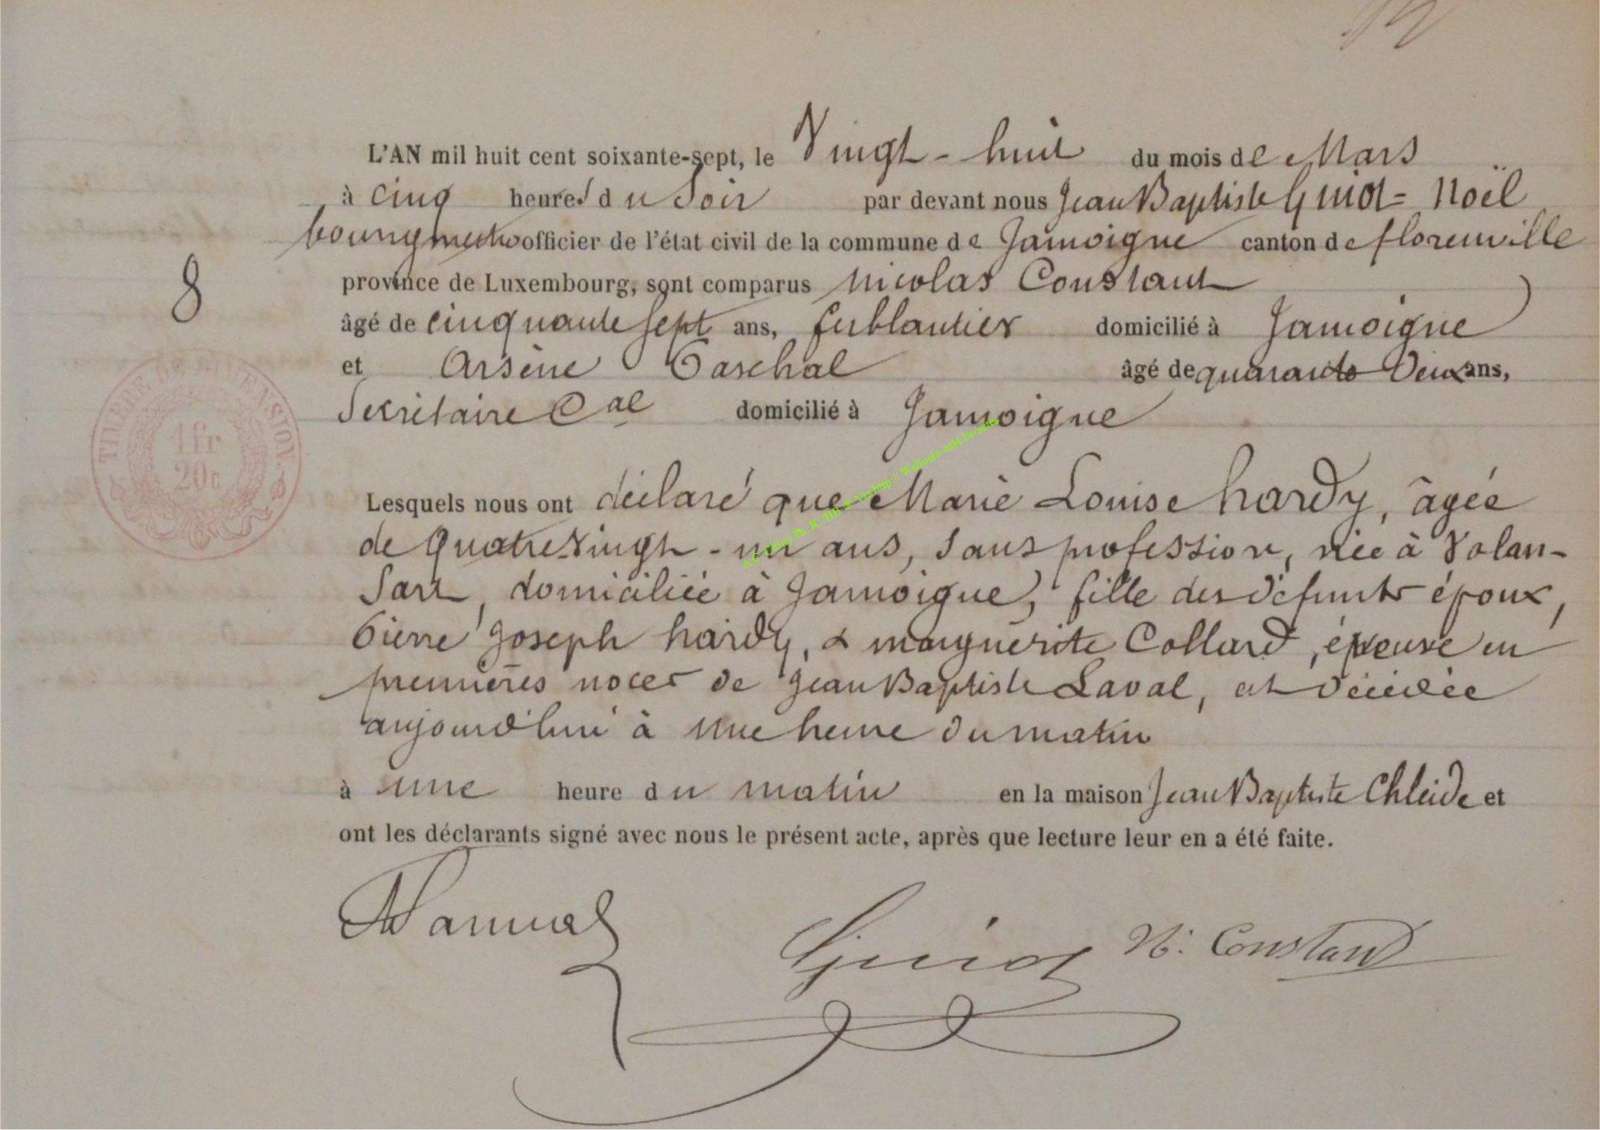 8
L'AN mil huit cent soixante-sept, le Vingt-huit du mois de Mars
à cinq heures du Soir par devant nous Jean Baptiste Guiot = Noël
bourgmestre officier de l'état civil de la commune de Jamoigne canton de florenville
province de Luxembourg, sont comparus Nicolas Constant
âgé de cinquante sept ans, ferblantier domicilié à Jamoigne
et Arsène Paschal âgé de quarante Deux ans,
Secrétaire Cal domicilié à Jamoigne
TIMBRE DE DIMENSION
1 fr
20c
Lesquels nous ont déclaré que Marie Louise hardy, âgée
de Quatre Vingt-un ans, Sans profession, née à Valan-
Sart, domiciliée à Jamoigne, fille des défunts époux,
Pierre Joseph hardy, & marguerite Collard, épouse en
premières noces de Jean Baptiste Laval, est décédée
aujourd'hui à une heure du matin
à une heure du matin en la maison Jean Baptiste Chleide et
ont les déclarants signé avec nous le présent acte, après que lecture leur en a été faite.
Guiot N. Constant